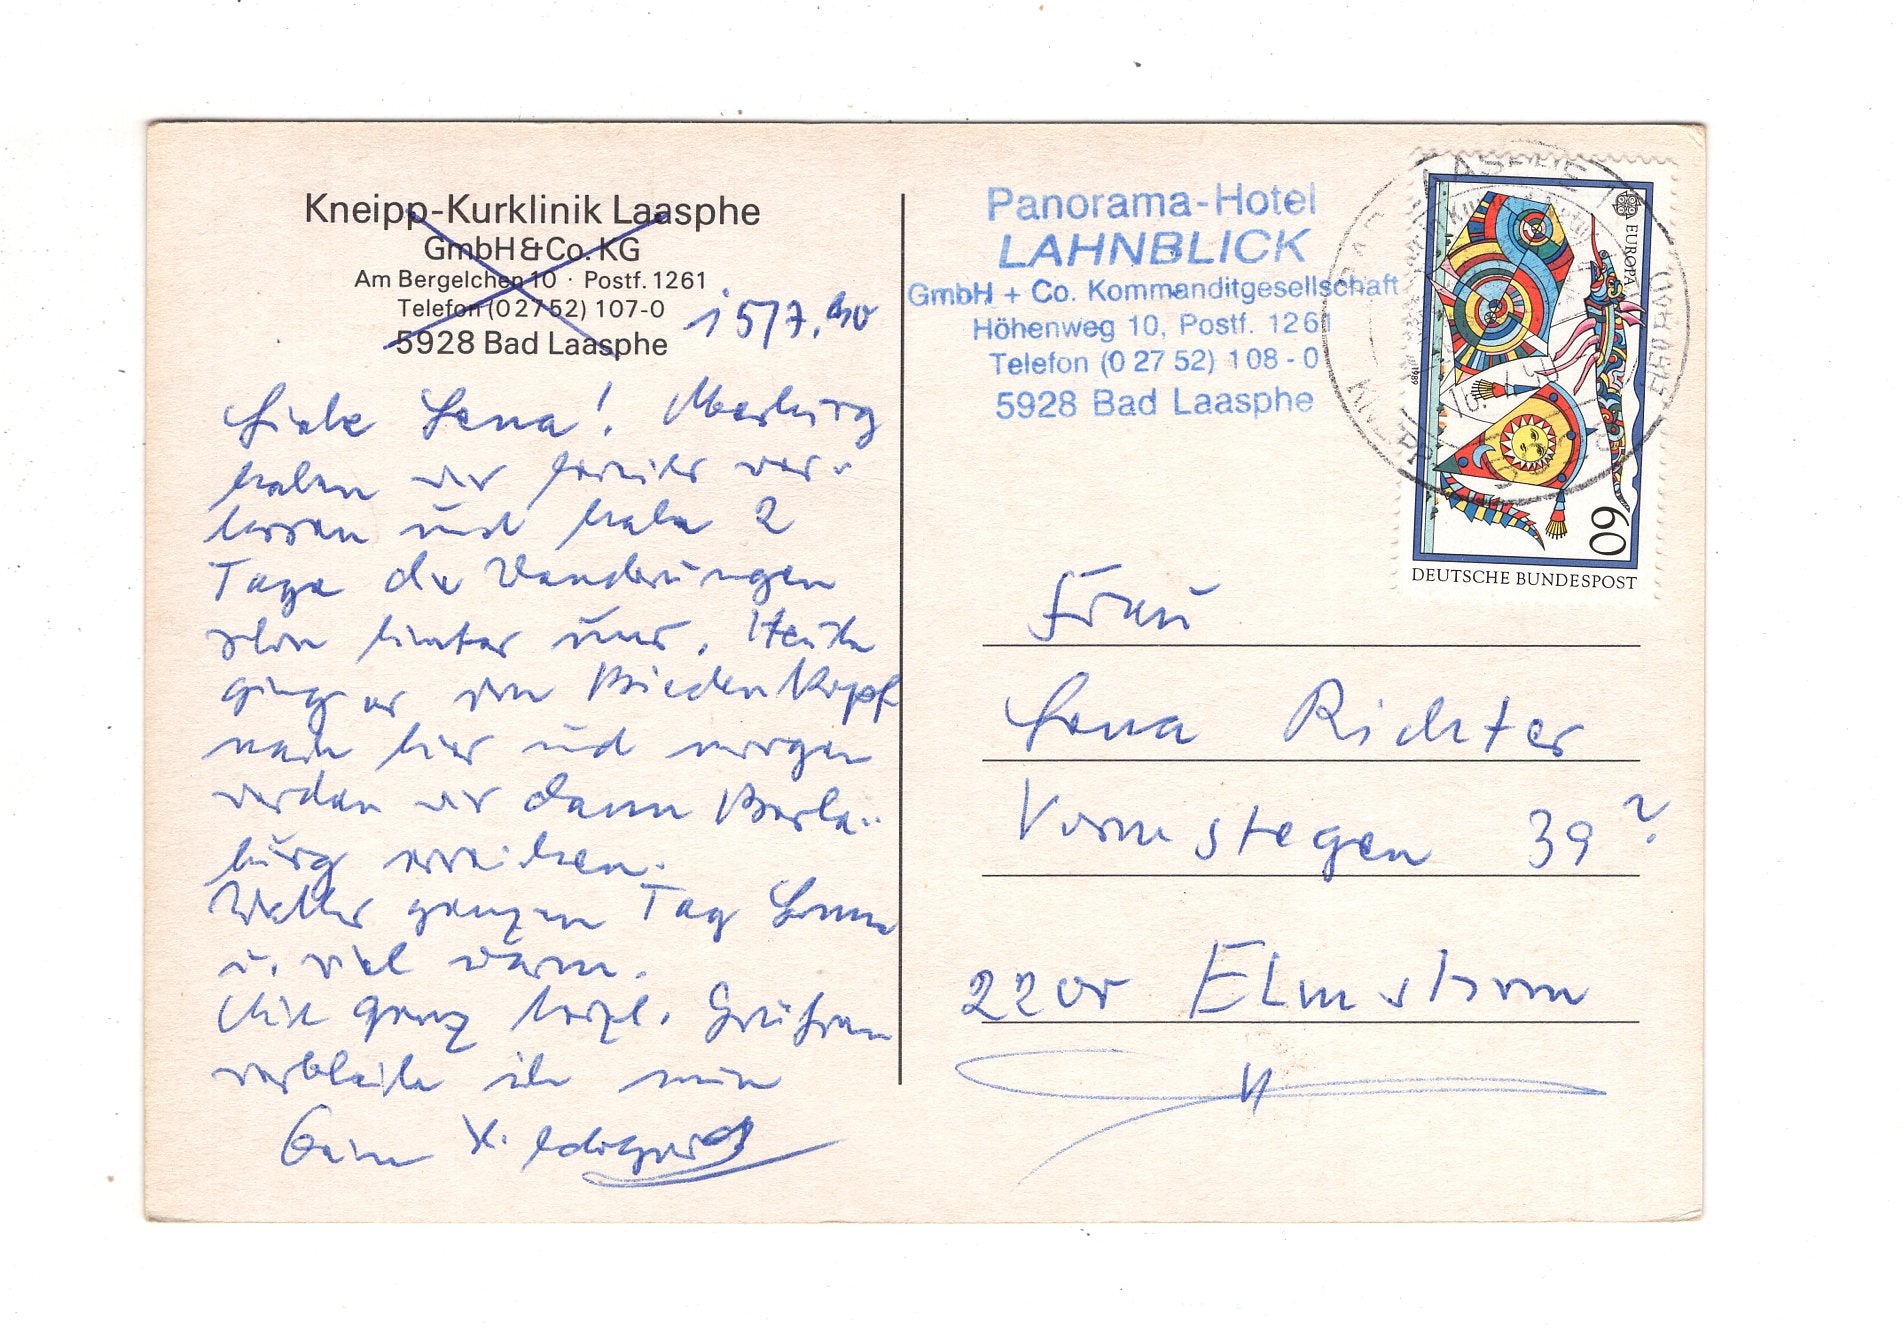 Kneipp-Kurklinik Laasphe
GmbH & Co. KG
Am Bergelchen 10 · Postf. 1261
Telefon (02752) 107-0
5928 Bad Laasphe
15/7.90
Liebe Lena! Marburg
haben wir bereits ver-
lassen und habe 2
Tage die Wanderungen
schon hinter uns. Heute
ging es von Biedenkopf
nach hier und morgen
werden wir dann Berle-
burg erreichen.
Wetter ganzen Tag Sonne
u. viel warm.
Mit ganz herzl. Grüßen
verbleibe ich wie
Panorama-Hotel
LAHNBLICK
GmbH + Co. Kommanditgesellschaft
Höhenweg 10, Postf. 1261
Telefon (0 27 52) 108-0
5928 Bad Laasphe
EUROPA
1989
60
DEUTSCHE BUNDESPOST
Frau
Lena Richter
Vormstegen 39?
2200 Elmshorn